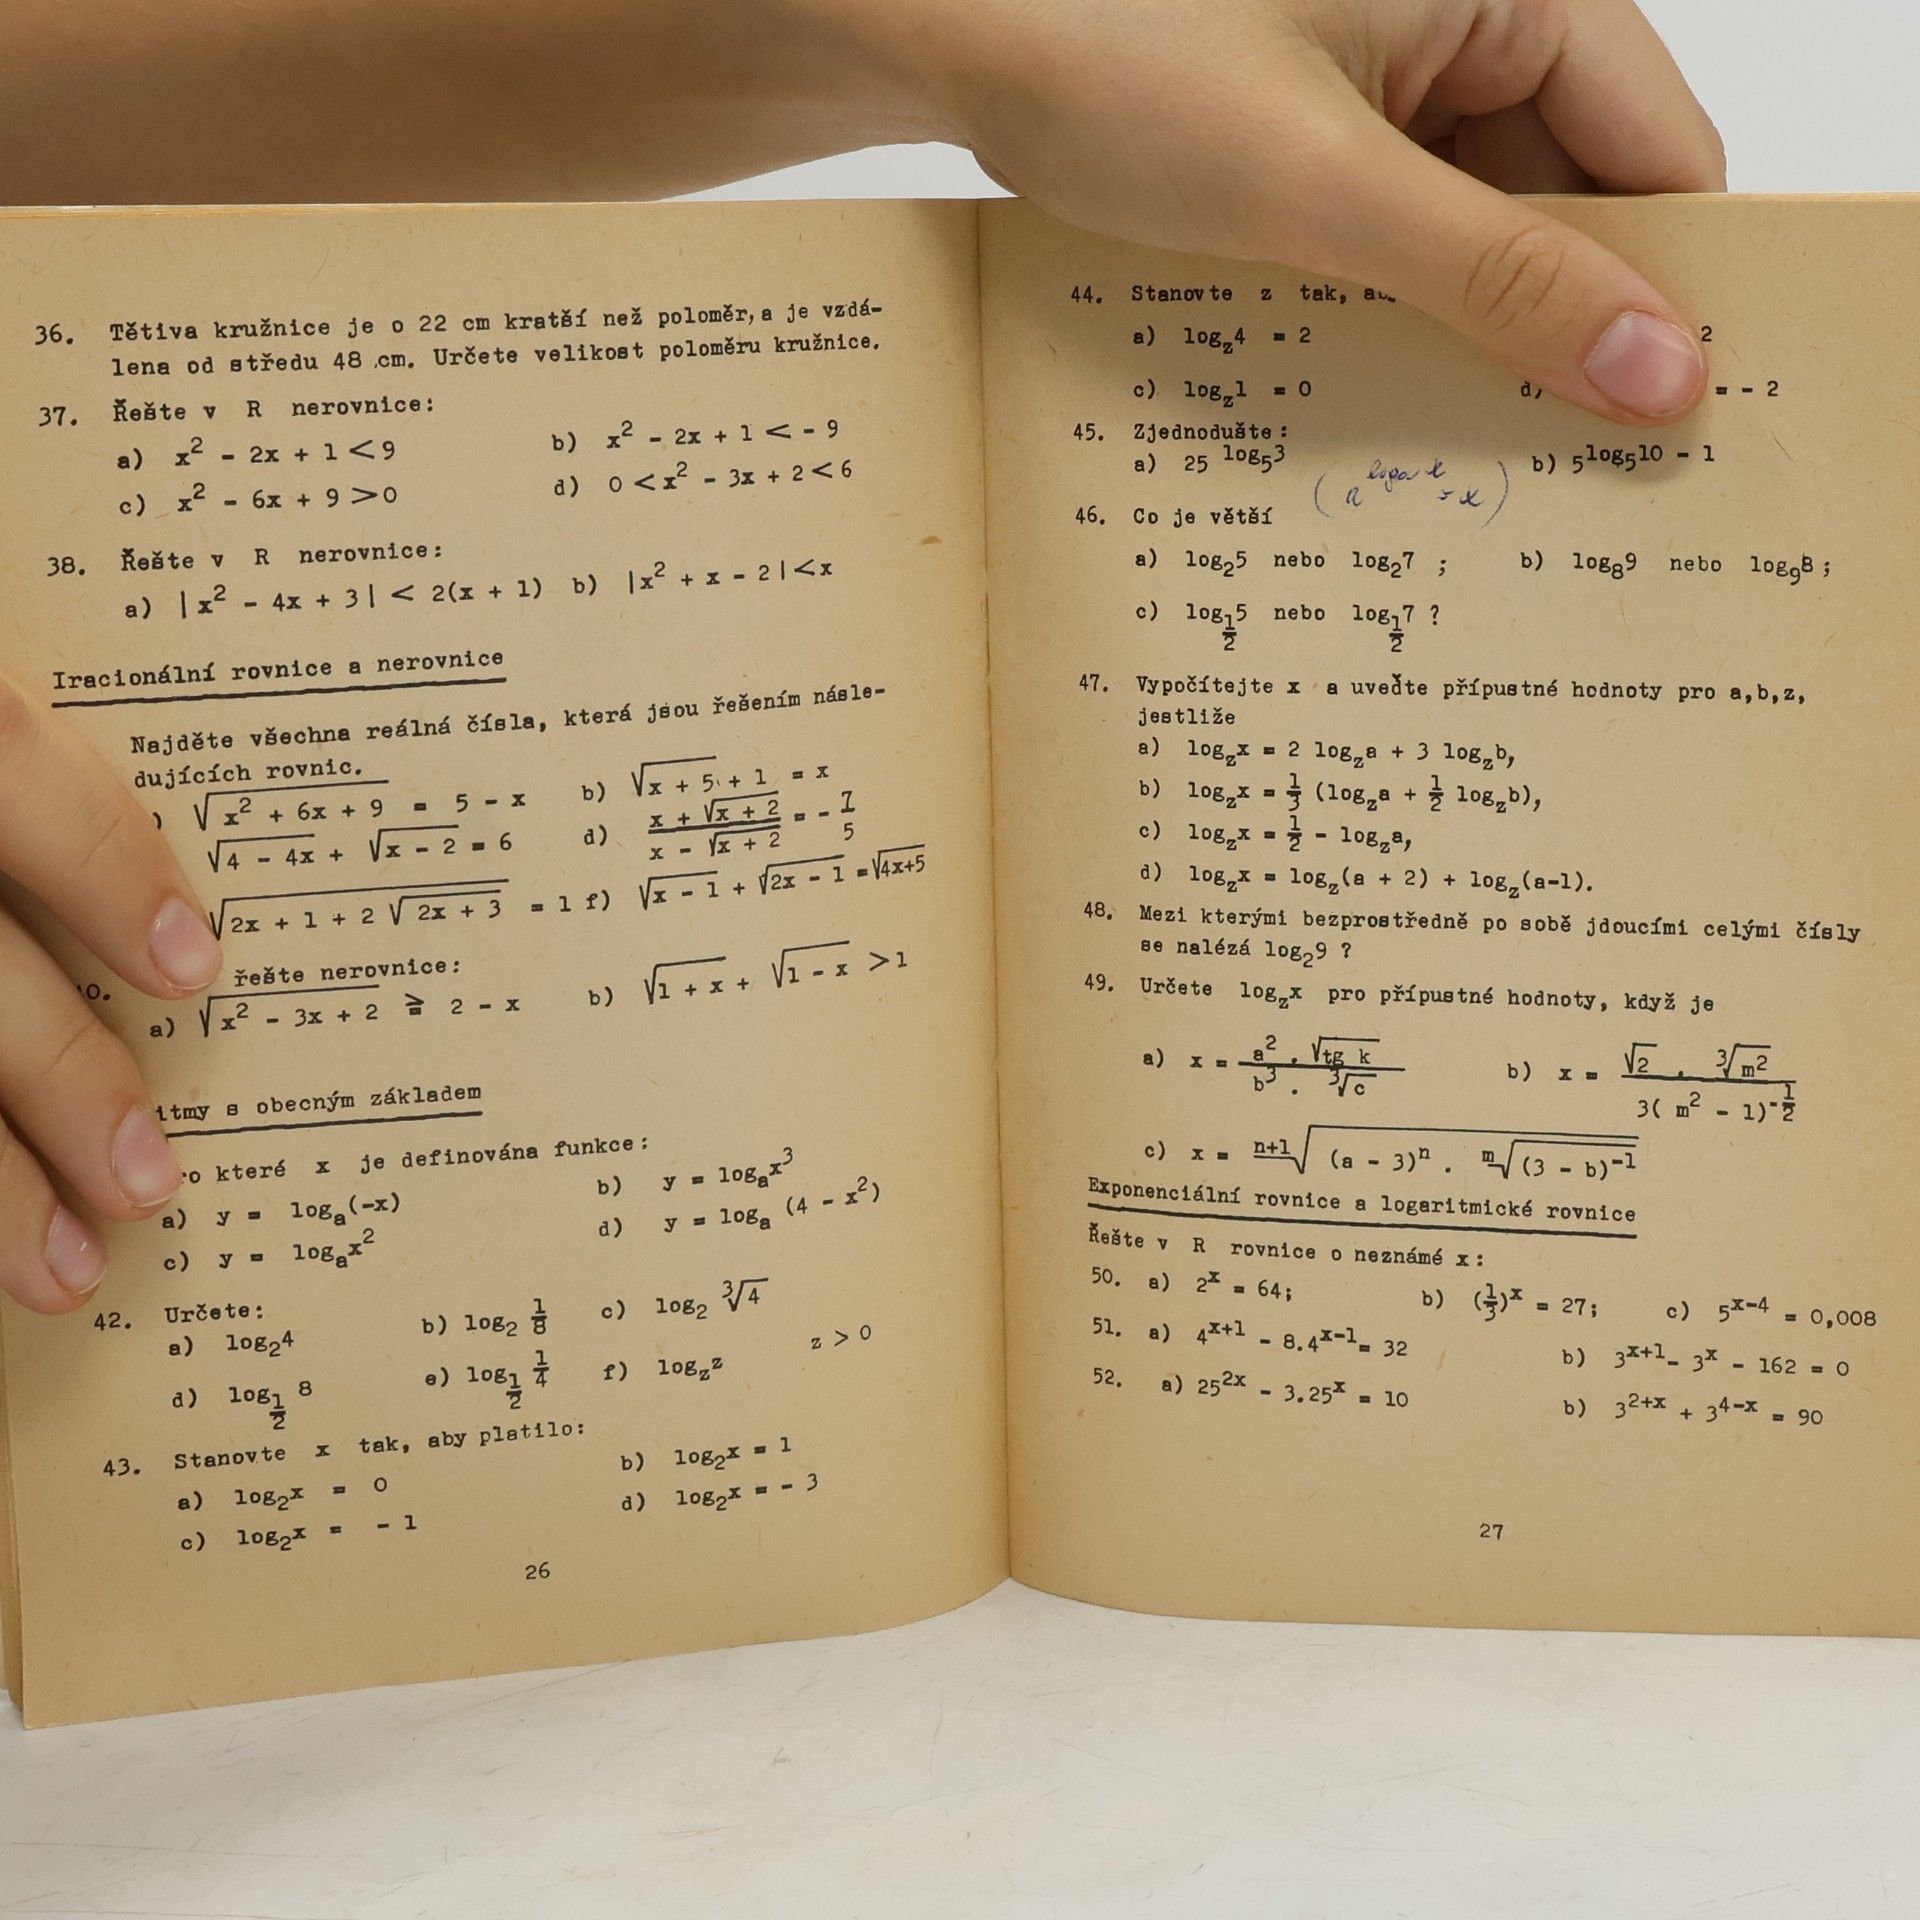 36. Tětiva kružnice je o 22 cm kratší než poloměr, a je vzdá-
lena od středu 48 cm. Určete velikost poloměru kružnice.
37. Řešte v R nerovnice:
a) x² - 2x + 1 < 9 b) x² - 2x + 1 < - 9
c) x² - 6x + 9 > 0 d) 0 < x² - 3x + 2 < 6
38. Řešte v R nerovnice:
a) |x² - 4x + 3| < 2(x + 1) b) |x² + x - 2| < x
Iracionální rovnice a nerovnice
Najděte všechna reálná čísla, která jsou řešením násle-
dujících rovnic.
) √(x² + 6x + 9) = 5 - x b) √(x + 5) + 1 = x
√(4 - 4x) + √(x - 2) = 6 d) (x + √(x + 2))/(x - √(x + 2)) = - 7/5
√(2x + 1 + 2 √(2x + 3)) = 1 f) √(x - 1) + √(2x - 1) = √(4x+5)
0. řešte nerovnice:
a) √(x² - 3x + 2) ≧ 2 - x b) √(1 + x) + √(1 - x) > 1
itmy s obecným základem
ro které x je definována funkce:
a) y = logₐ(-x) b) y = logₐx³
c) y = logₐx² d) y = logₐ (4 - x²)
42. Určete:
a) log₂4 b) log₂ 1/8 c) log₂ ∛4
d) log_(1/2) 8 e) log_(1/2) 1/4 f) log_z z z > 0
43. Stanovte x tak, aby platilo:
a) log₂x = 0 b) log₂x = 1
c) log₂x = - 1 d) log₂x = - 3
26
44. Stanovte z tak,
a) log_z 4 = 2 2
c) log_z 1 = 0 d) = - 2
45. Zjednodušte:
a) 25^(log₅3) b) 5^(log₅10 - 1)
(a^(logₐx) = x)
46. Co je větší
a) log₂5 nebo log₂7 ; b) log₈9 nebo log₉8 ;
c) log_(1/2) 5 nebo log_(1/2) 7 ?
47. Vypočítejte x a uveďte přípustné hodnoty pro a,b,z,
jestliže
a) log_z x = 2 log_z a + 3 log_z b,
b) log_z x = 1/3 (log_z a + 1/2 log_z b),
c) log_z x = 1/2 - log_z a,
d) log_z x = log_z (a + 2) + log_z (a-1).
48. Mezi kterými bezprostředně po sobě jdoucími celými čísly
se nalézá log₂9 ?
49. Určete log_z x pro přípustné hodnoty, když je
a) x = (a² . √(tg k))/(b³ . ∛c) b) x = (√2 . ∛(m²))/(3( m² - 1)^(-1/2))
c) x = ⁿ⁺¹√((a - 3)ⁿ . ᵐ√((3 - b)⁻¹))
Exponenciální rovnice a logaritmické rovnice
Řešte v R rovnice o neznámé x:
50. a) 2ˣ = 64; b) (1/3)ˣ = 27; c) 5ˣ⁻⁴ = 0,008
51. a) 4ˣ⁺¹ - 8.4ˣ⁻¹ = 32 b) 3ˣ⁺¹ - 3ˣ - 162 = 0
52. a) 25²ˣ - 3.25ˣ = 10 b) 3²⁺ˣ + 3⁴⁻ˣ = 90
27